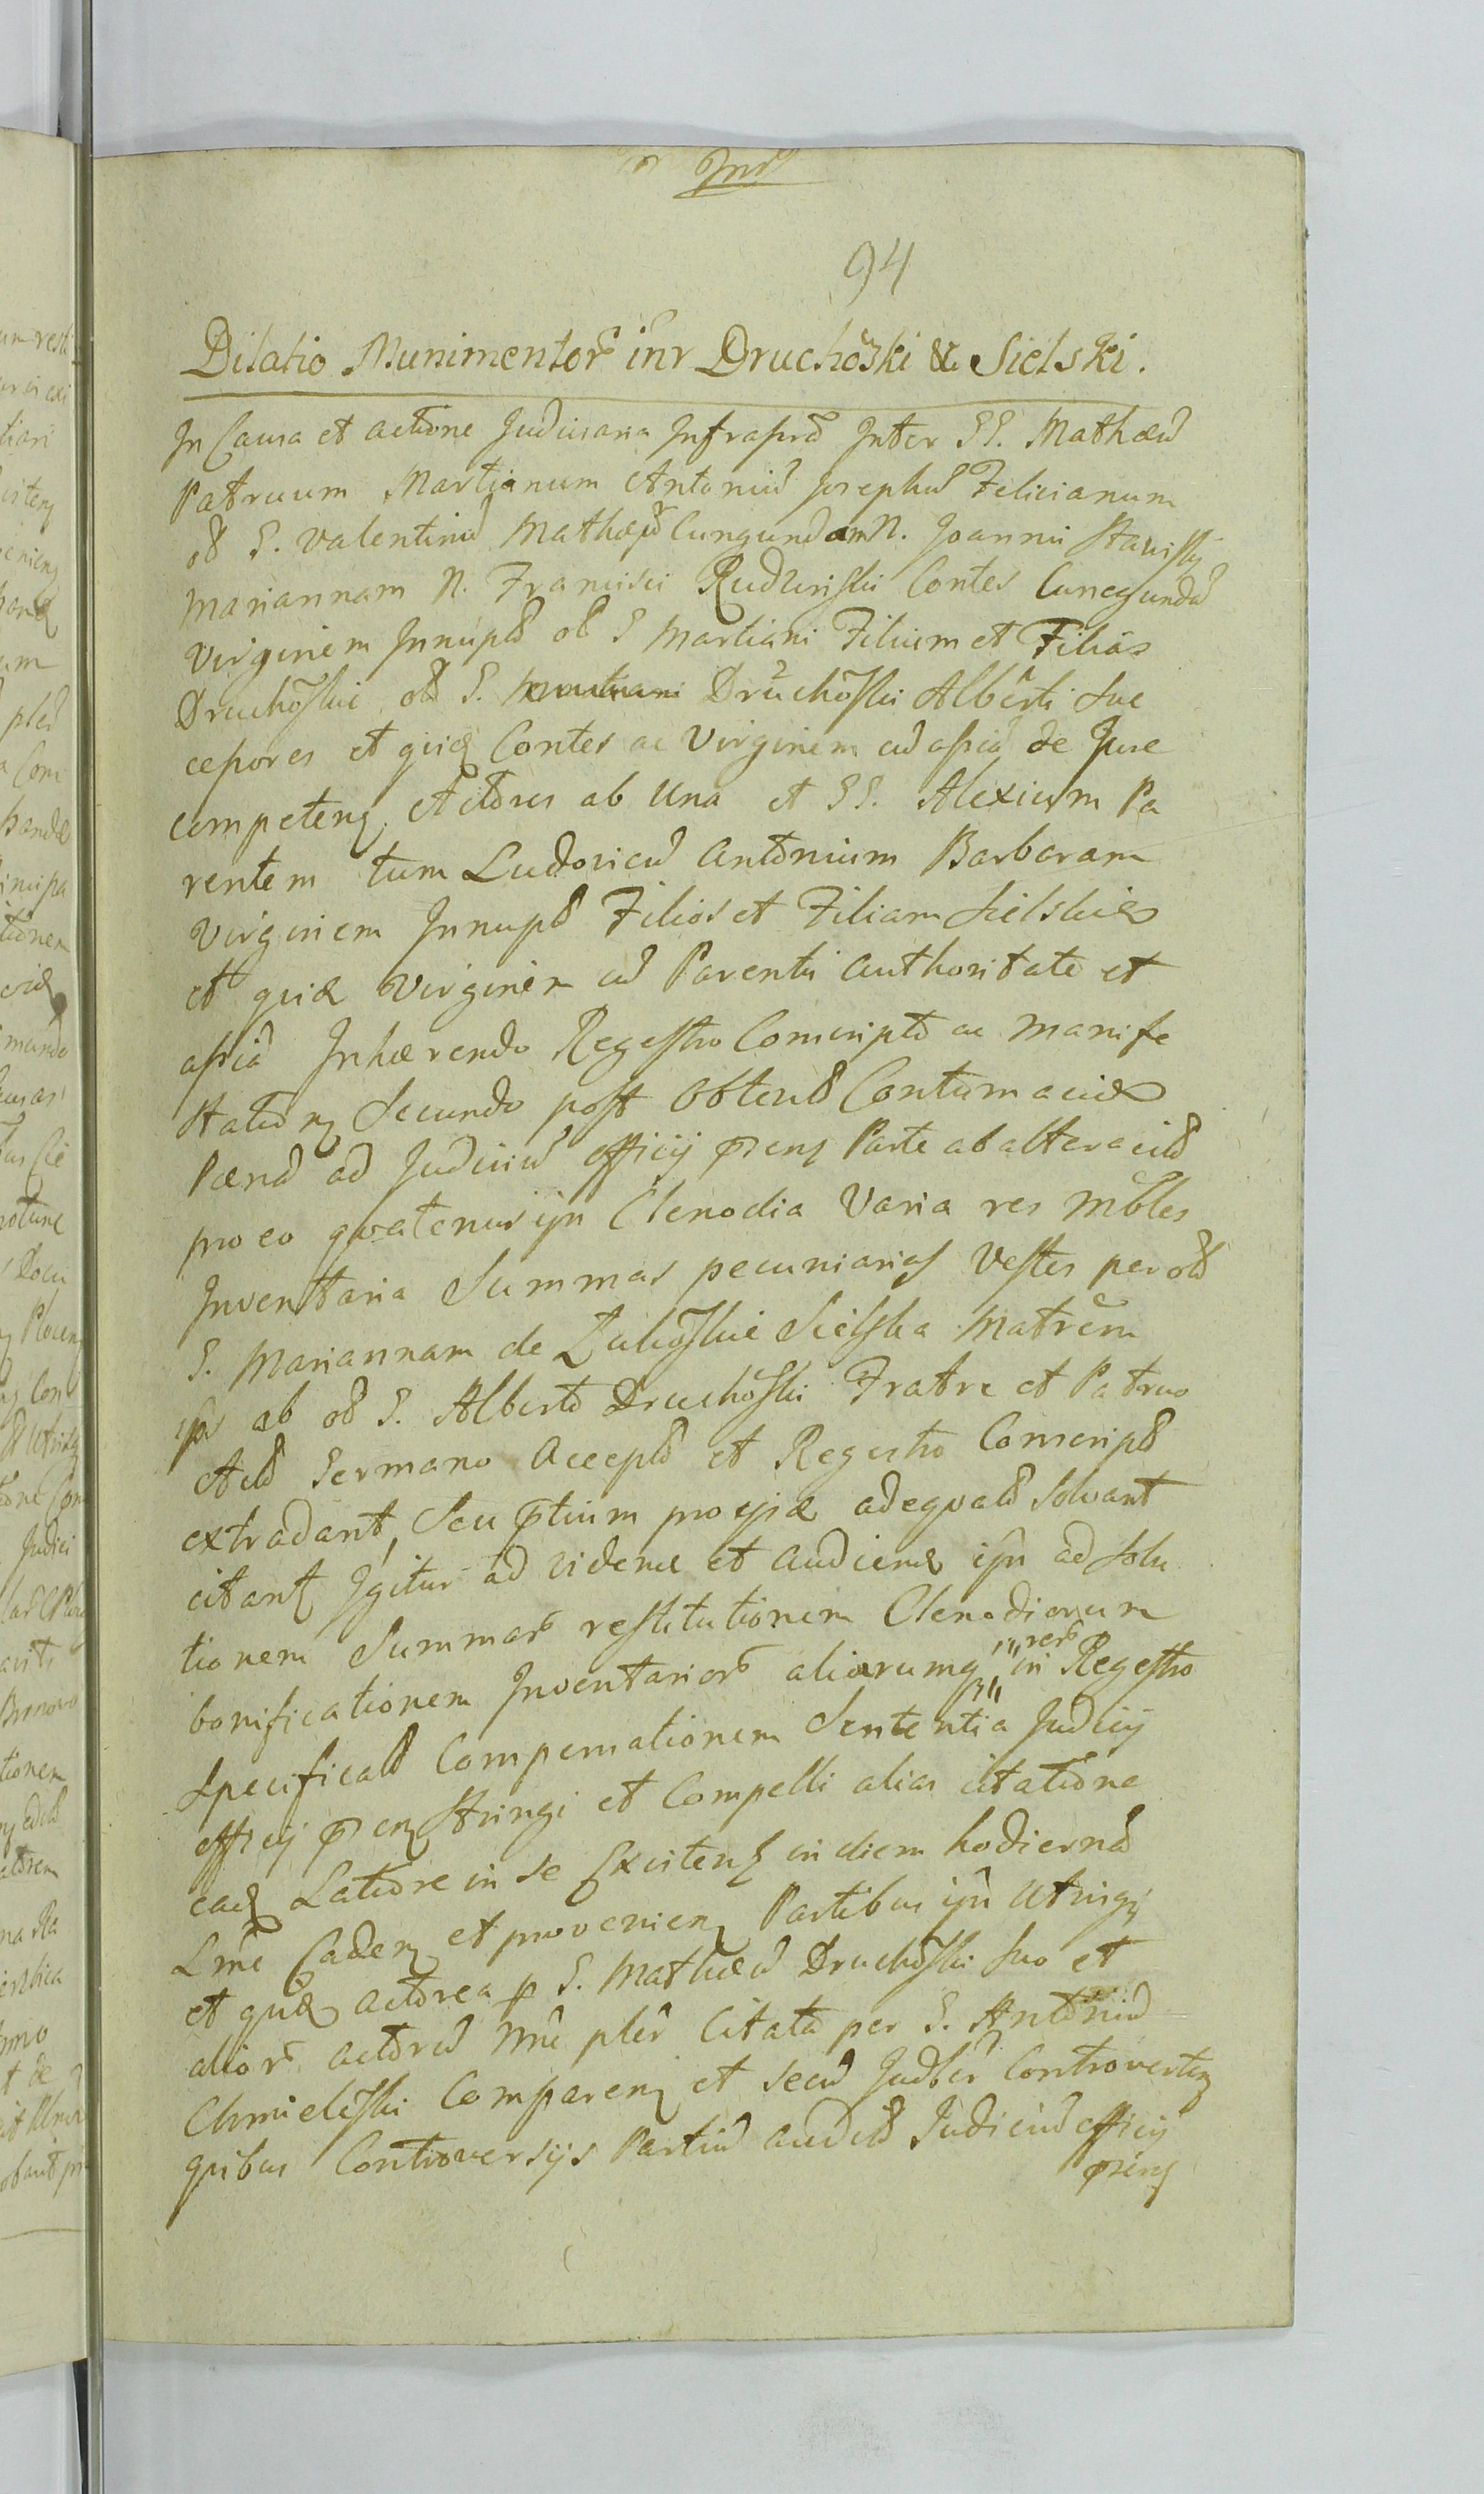 94
Dilatio Munimentor inr Druchoski & Sielski.
In Causa et actione Judiciaria Infrapta Inter GG. Mathæu
Patruum Martianum Antoniu Josephu Felicianum
ol G. Valentini Mathæu Cungundam N. Joannis
Mariannam N. Francisci Rudzinski Contes Cunegunda
Virginem Innupta ol G Martiani Filium et Filias
Druchoskie ol G. Druchoski Alberti Suc
cessores et quid Contes ac Virginem cu assia de Jure
competen Actores ab Una et GG. Alexium Pa
rentem tum Ludovicu Antonium Barbaram
Virginem Innupt Filios et Filiam Sielskie
et quid Virginem cu Parentis authoritate et
assia Inhærendo Regestro Conscripto ac manife
station Secundo post obtent Contumaciæ
Pænam ad Judiciu officij præns Parte ab altera citt
pro eo quatenus ipsi Clenodia Varia res mbles
Inventaria Summas pecuniarias Vestes per ol
G. Mariannam de Zukoskie Sielska Matrem
ipor ab ol G. Alberto Druchoski Fratre et Patruo
Act Germano Accept et Regestro Conscript
extradant, Seu ptium pro ijs adequat Solvant
citant Igitur ad videnæ et audienæ ipsi ad Solu
tionem Summar restitutionem Clenodiorum
bonificationem Inventarior aliarumq rer in Regestro
Specificat Compensationem Sententia Judicij
officij præn Stringi et Compelli alias citatione
ead Latiore in se Existen in diem hodierna
Lme Caden et provenien Partibus ipsi Utrisq
et quid actorea p G. Mathæu Druchoski Suo et
alior actoru nne pler Citata per G. Antoniu
Chmieleski Comparen et secu Judler Controverten
quibus Controversijs Partiu audit Judiciu officij
præns